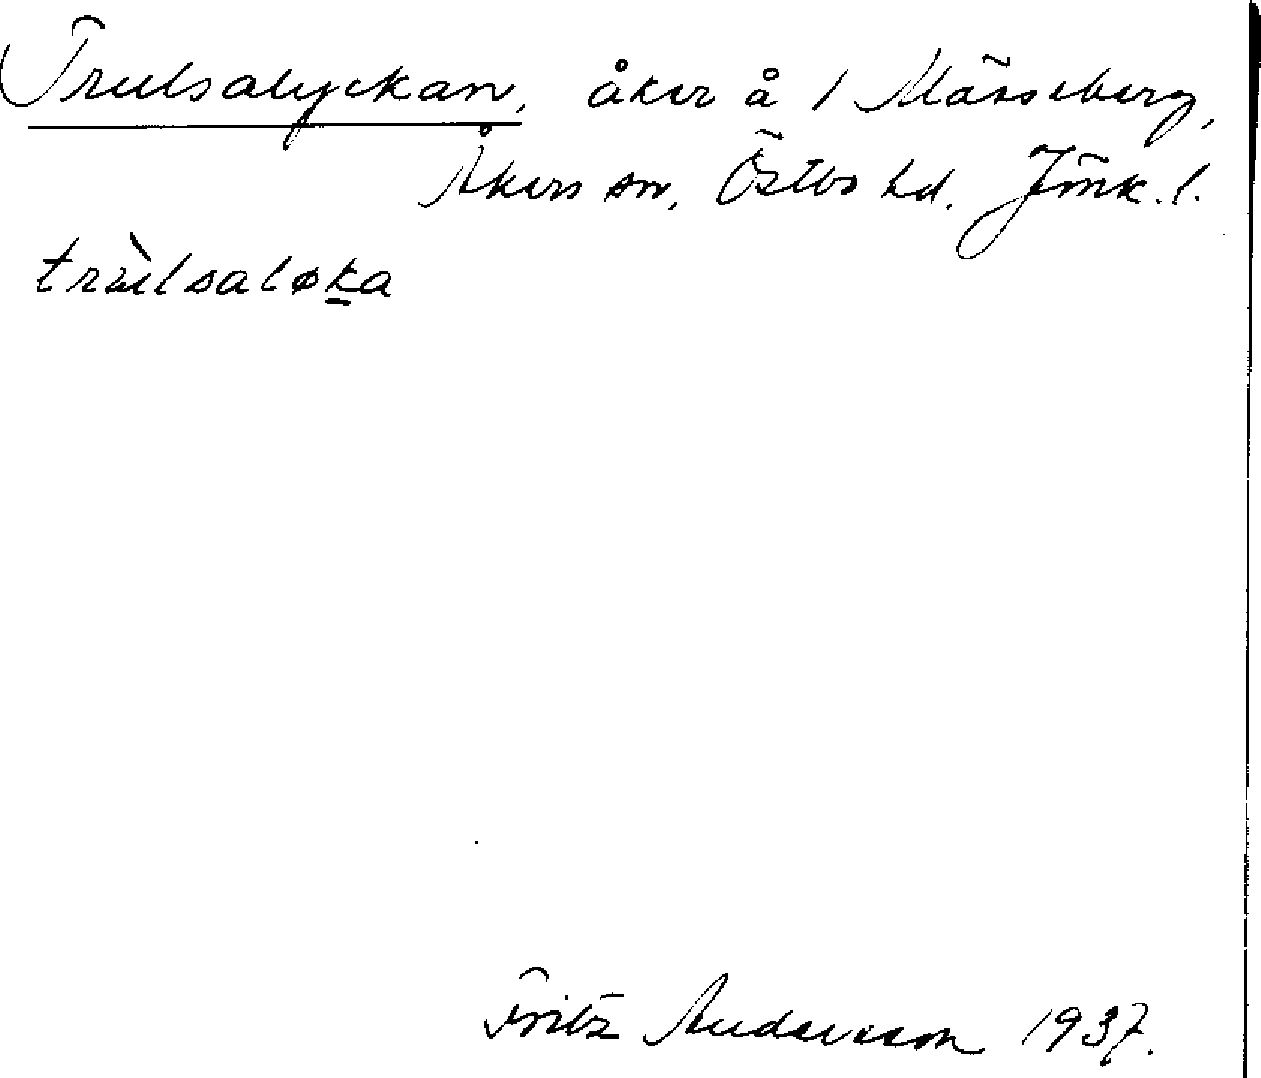 Trulsalyckan, åker å 1 Mässeberg,
Åkers sn, Östbo hd. Jönk. l.
tràlsaløka
Fritz Andersson 1937.